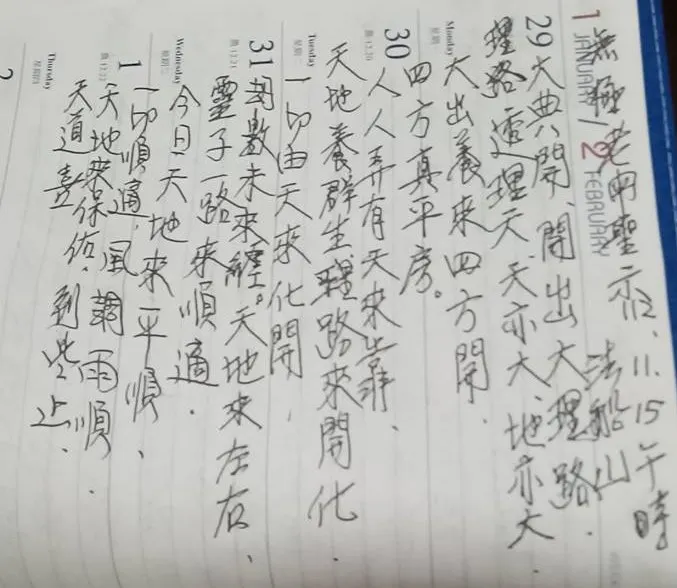 無極老母聖示、112.11.15午時
1 JANUARY / 2 FEBRUARY
法船山
29
大典開、開出大理路.
理路透理天、天亦大、地亦大
Monday
星期一
大出養來四方開.
四方真平房。
30
人人弄有天來靠、
天地養群生理路來開化.
Tuesday
星期二
一切由天來化開.
31
劫數未來經。天地來左右、
靈子一路來順適.
Wednesday
星期三
今日天地來平順、
一切順適、風調雨順.
1
天地來保佑、到些止.
天道喜
Thursday
星期四
2